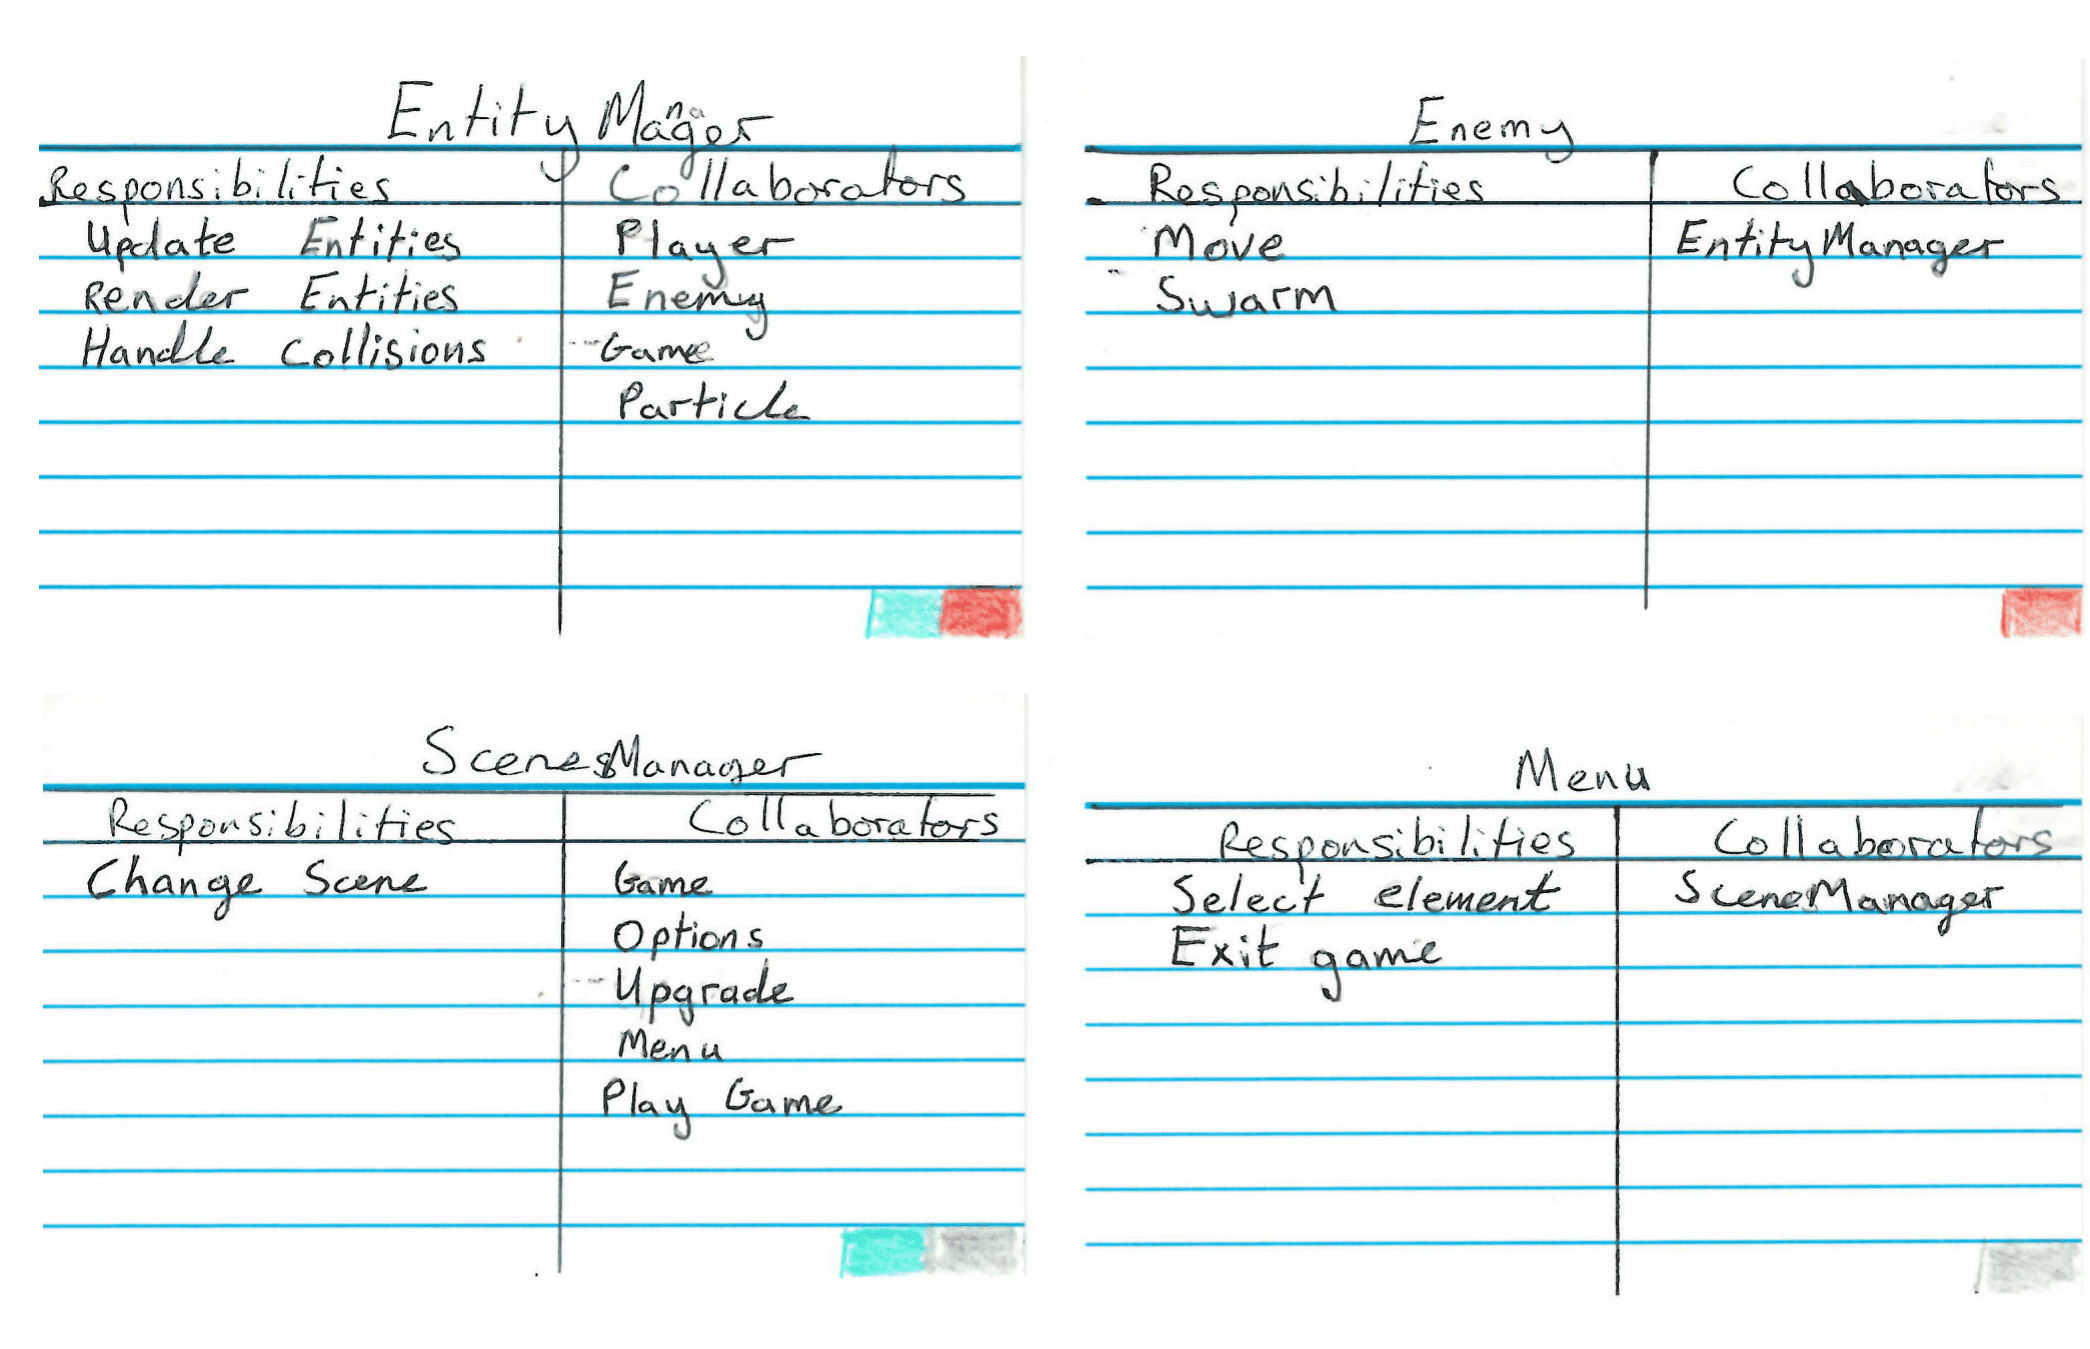 Entity Manager
Responsibilities Collaborators
Update Entities Player
Render Entities Enemy
Handle Collisions Game
Particle
Enemy
Responsibilities Collaborators
Move EntityManager
Swarm
ScenesManager
Responsibilities Collaborators
Change Scene Game
Options
Upgrade
Menu
Play Game
Menu
Responsibilities Collaborators
Select element ScenesManager
Exit game